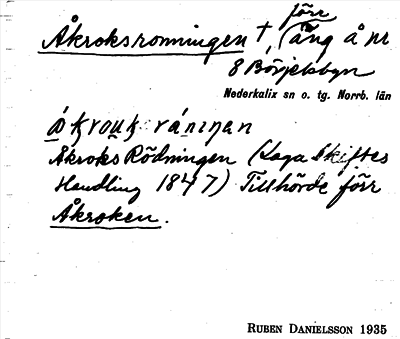 Åkroksronningen †, (förr äng å nr
8 Börjelsbyn
Nederkalix sn o. tg. Norrb. län
Åkroks Rödningen (Laga Skiftes
Handling 1847) Tillhörde förr
Åkroken.
RUBEN DANIELSSON 1935